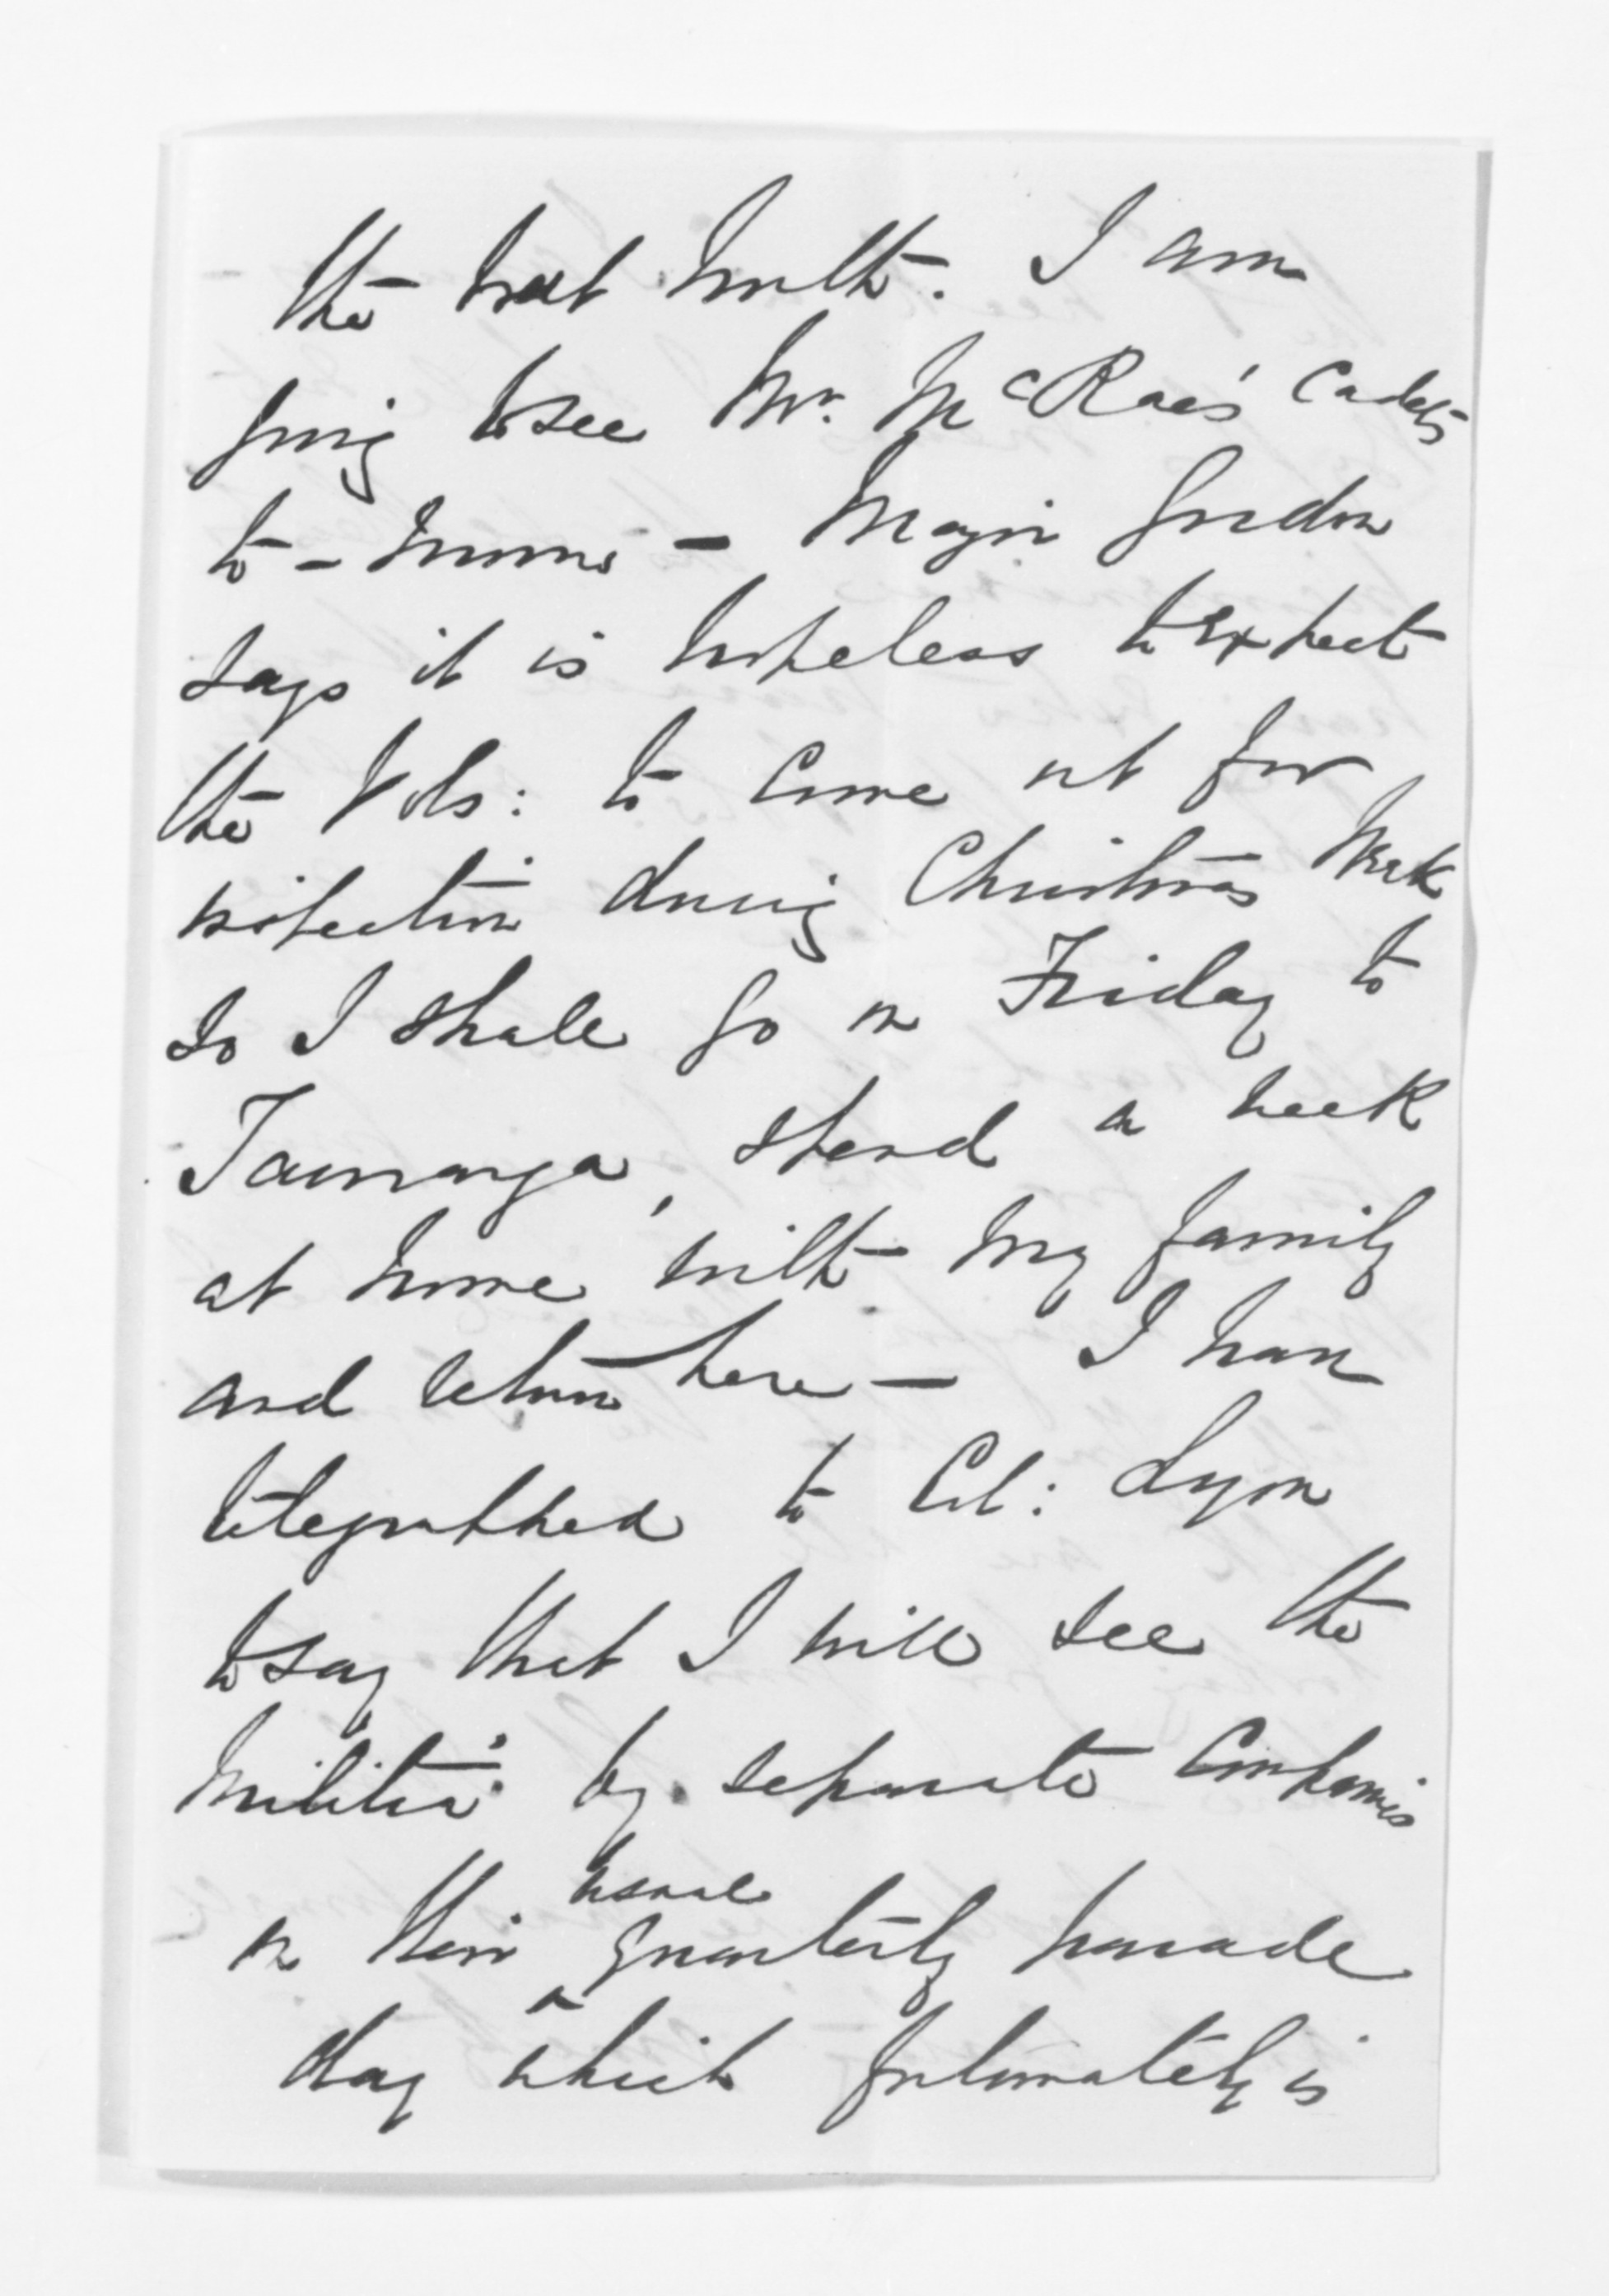 the next month. I am
going to see Mr. McRae's Cadets
to-morrow - Major Gordon
says it is hopeless to expect
the Vols: to come out for
inspection during Christmas Week
so I shall go on Friday to
Tauranga, spend a week
at home with my family
and return here - I have
telegraphed to Col: Lyon
to say that I will see the
Militia by separate Companies
on their usual quarterly parade
day which fortunately is